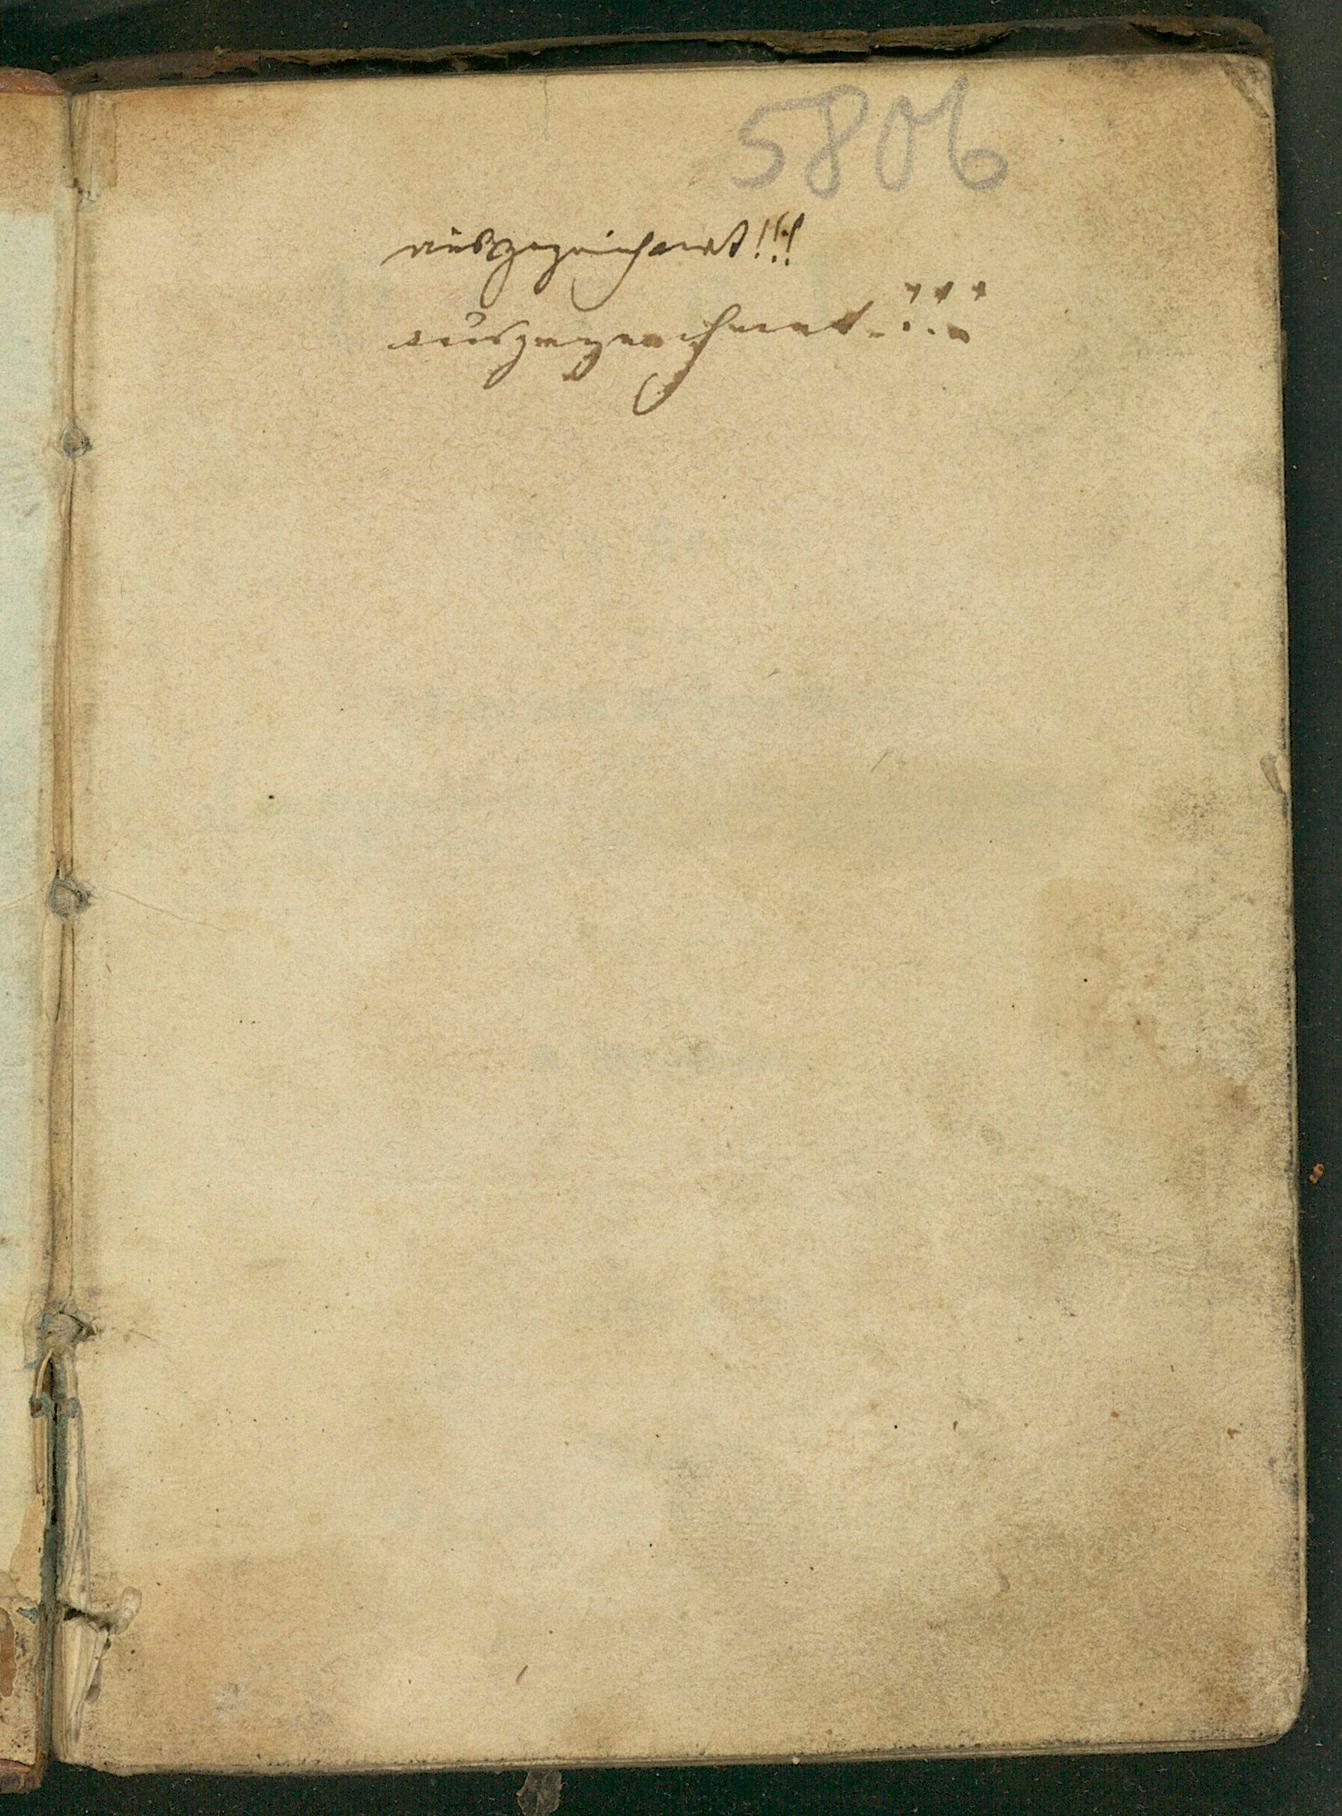 5806
ausgezeichnet!!!
ausgezeichnet!!!